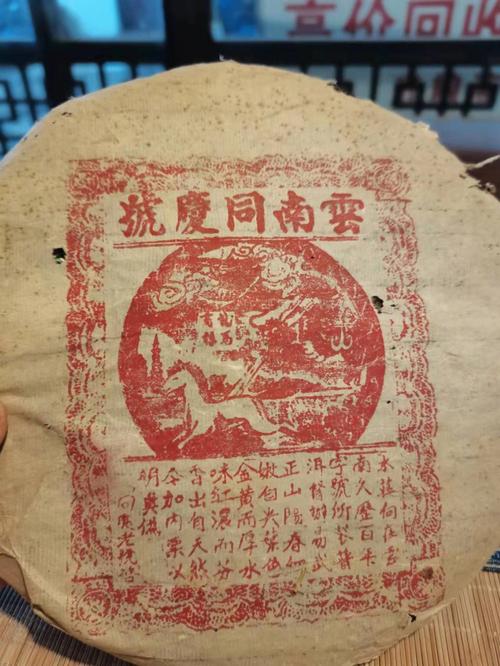 高价回收
雲南同慶號
本莊向在雲
南久歷百年
字號所茶普
洱督辦易武
正山陽春細
嫩白尖葉色
金黃而厚水
味紅濃而芬
香出自天然
今加內票以
明真偽
同慶老號啓